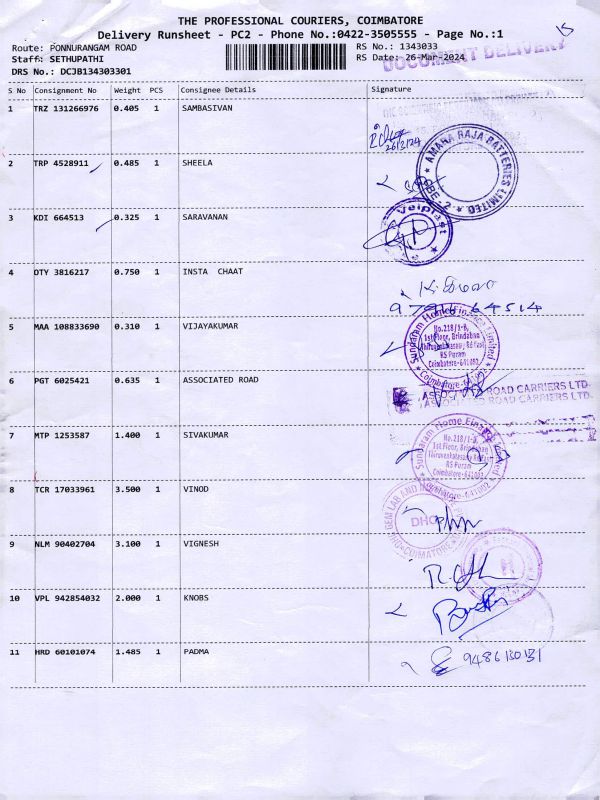 THE PROFESSIONAL COURIERS, COIMBATORE
Delivery Runsheet - PC2 - Phone No.:0422-3505555 - Page No.:1
15
Route: PONNURANGAM ROAD
Staff: SETHUPATHI
DRS No.: DCJB134303301
RS No.: 1343033
RS Date: 26-Mar-2024
DOCUMENT DELIVERY
S No Consignment No Weight PCS Consignee Details Signature
1 TRZ 131266976 0.405 1 SAMBASIVAN
26/3/24
2 TRP 4528911 0.485 1 SHEELA
AMARA RAJA BATTERIES LIMITED
CBE-2
3 KDI 664513 0.325 1 SARAVANAN
Velplast
4 OTY 3816217 0.750 1 INSTA CHAAT
5 MAA 108833690 0.310 1 VIJAYAKUMAR
Sundaram Home Finance Limited
No.218/1-B,
1st Floor, Brindaban
Thiruvenkatasamy Rd East
RS Puram
Coimbatore-641002
6 PGT 6025421 0.635 1 ASSOCIATED ROAD
ASSOCIATED ROAD CARRIERS LTD.
ASSOCIATED ROAD CARRIERS LTD.
7 MTP 1253587 1.400 1 SIVAKUMAR
Sundaram Home Finance Limited
No.218/1-B,
1st Floor, Brindaban
Thiruvenkatasamy Rd East
RS Puram
Coimbatore-641002
8 TCR 17033961 3.500 1 VINOD
GEM LAB AND
COIMBATORE
9 NLM 90402704 3.100 1 VIGNESH
10 VPL 942854032 2.000 1 KNOBS
11 HRD 60101074 1.485 1 PADMA